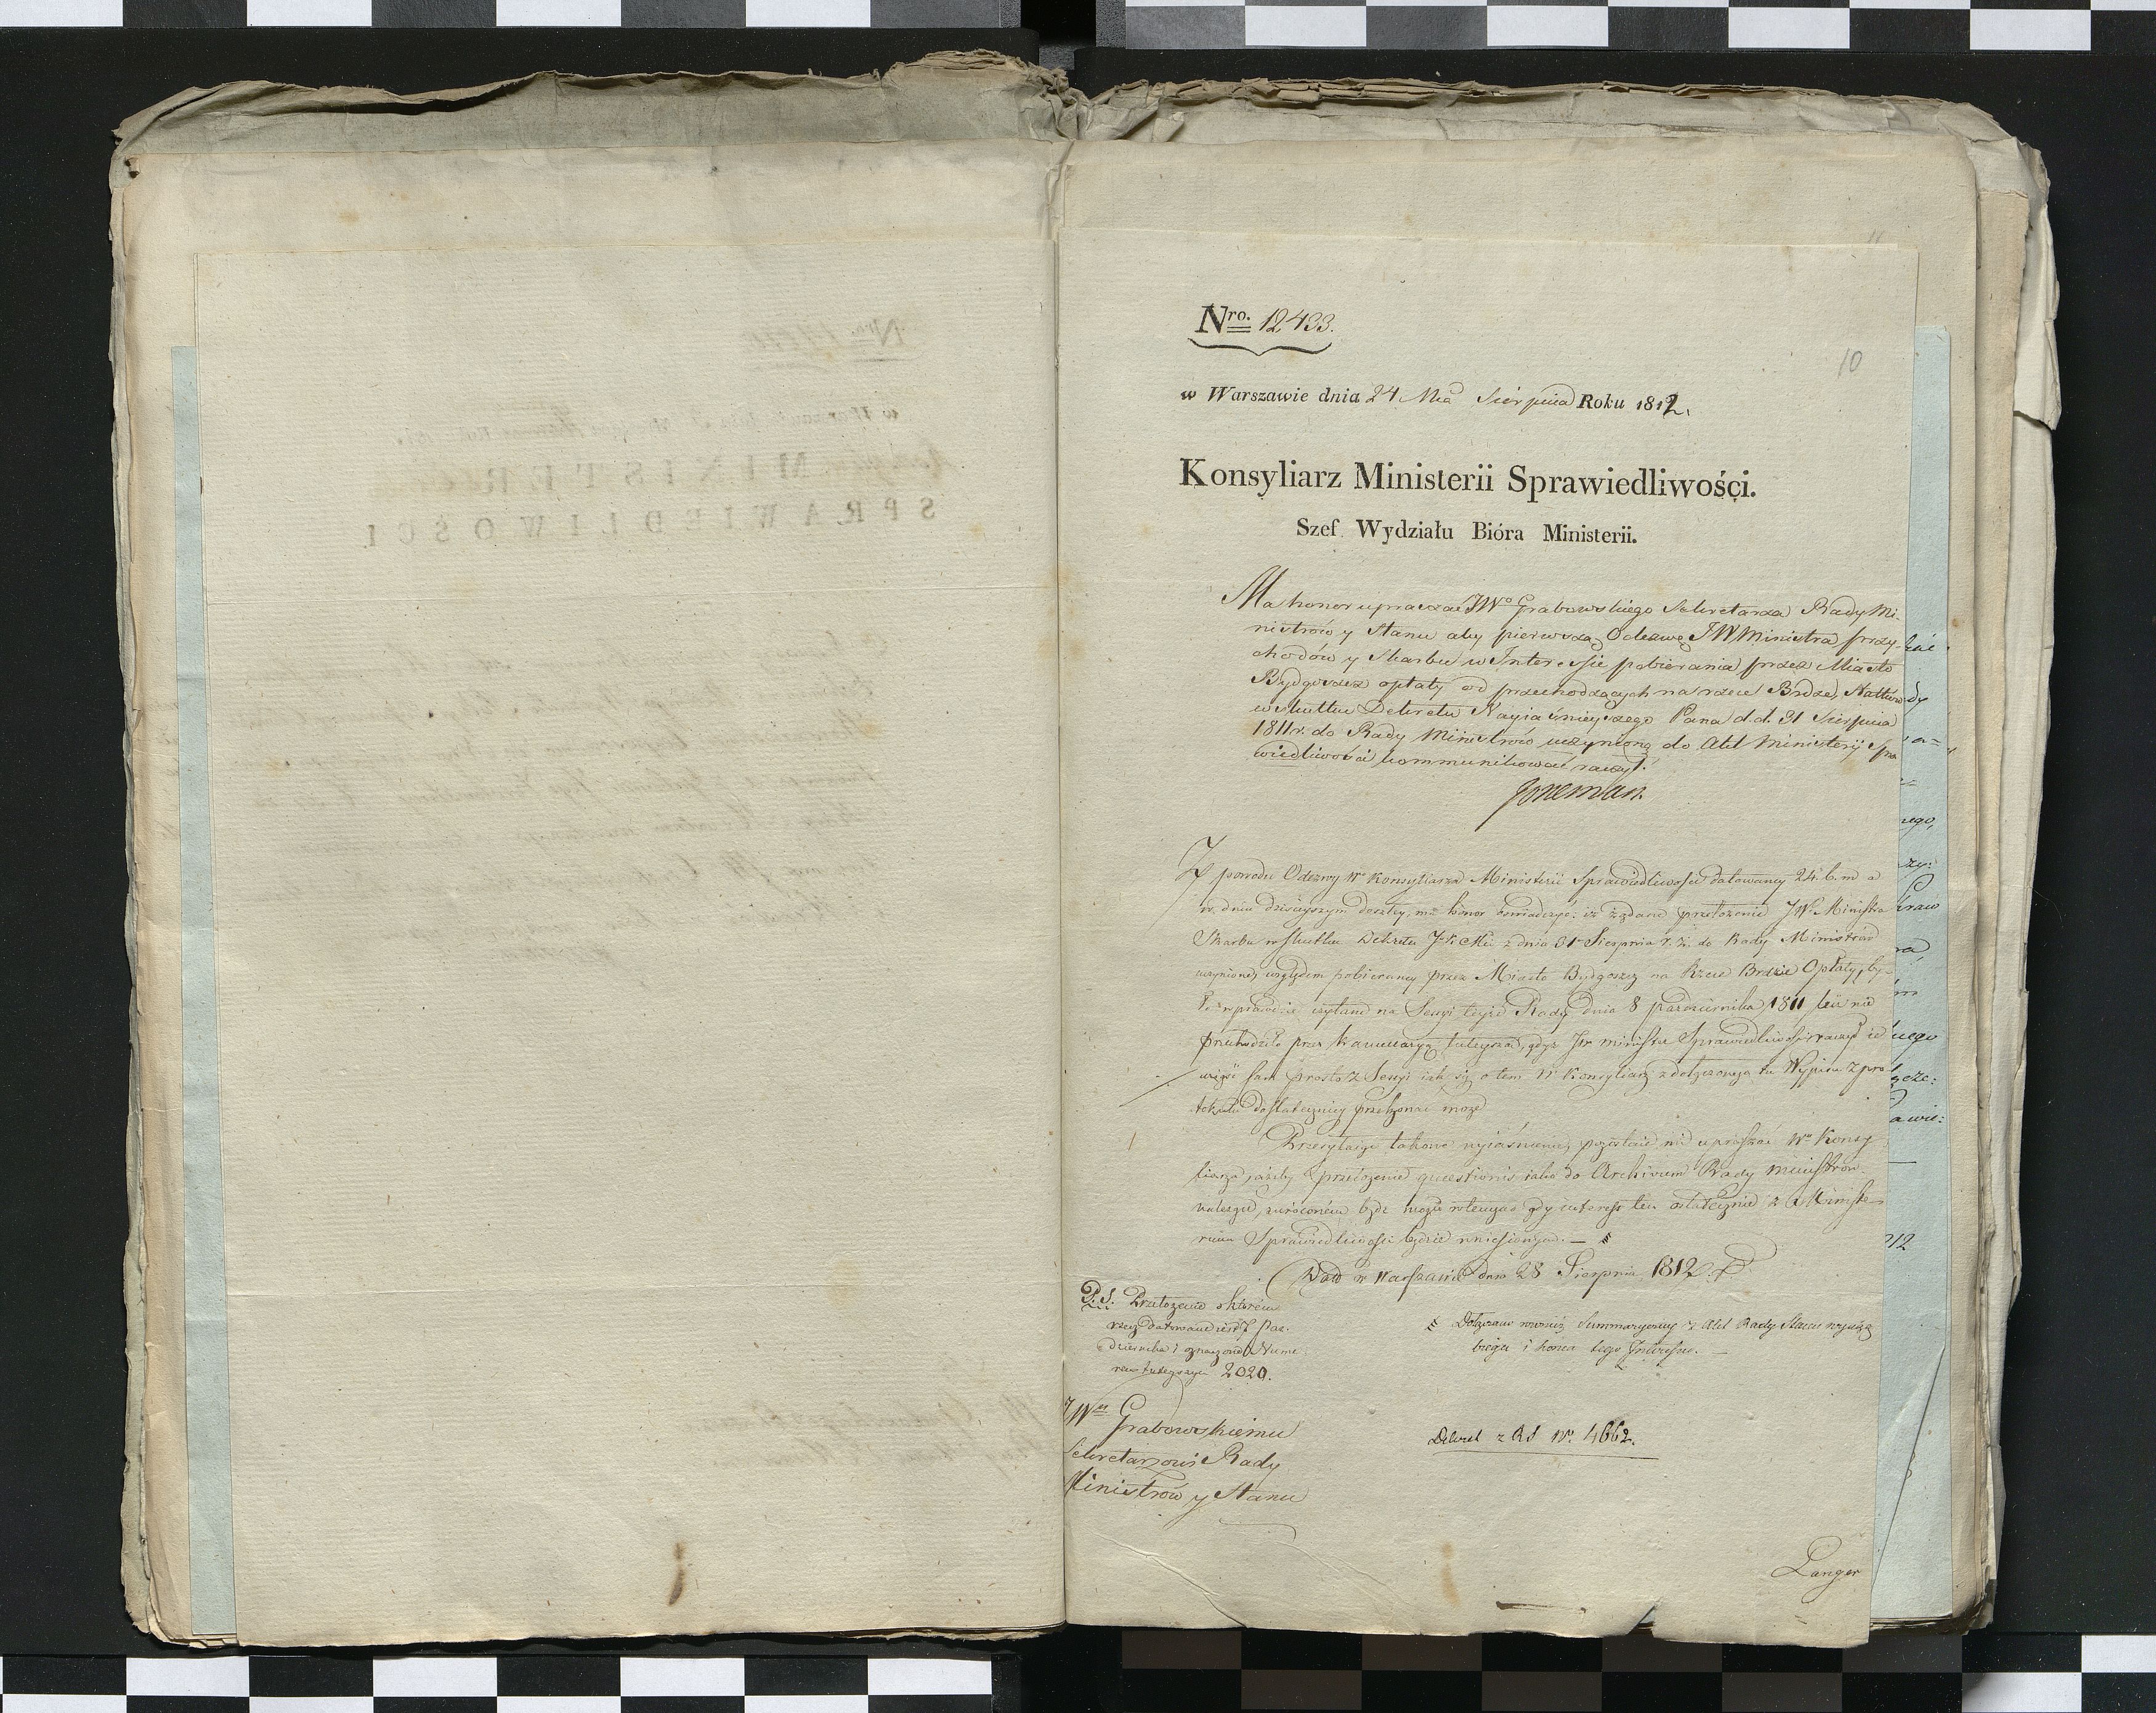 Nro. 12,433.
10
w Warszawie dnia 24 Mca Sierpnia Roku 1812.
Konsyliarz Ministerii Sprawiedliwości.
Szef Wydziału Bióra Ministerii.
Ma honor upraszać JWo Grabowskiego Sekretarza Rady Mi-
nistrów y Stanu aby pierwszą Odezwę JW Ministra przy-
chodów y Skarbu w Interessie pobierania przez Miasto
Bydgoszcz opłaty od przechodzących na rzece Brdzie, Statków
w skutku Dekretu Nayiaśnieyszego Pana d.d. 31 Sierpnia
1811 r. do Rady Ministrów uczynioną do Akt Ministerij Spra
wiedliwości kommunikować raczył.
Z powodu Odezwy Wo Konsyliarza Ministerii Sprawiedliwości datowaney 24. b. m a
w dniu dzisieyszym doszłey, ma honor oświadczyć: iż żądane przełożenie JW Ministra
Skarbu w skutku Dekretu J. K. Mci z dnia 31 Sierpnia r. z. do Rady Ministrów
uczynione, względem pobieraney przez Miasto Bydgoszcz na Rzece Brdzie Opłaty, by-
ło wprawdzie czytane na Sessyi teyże Rady dnia 8 października 1811 lecz nie
przechodziło przez kancellaryą tuteyszą, gdyż JW minister Sprawiedliwości raczył ie
wziąść sam prosto z Sessyi iak się o tem W Konsyliarz z dołączonego tu Wypisu z pro-
tokułu dostateczniey przekonać może
Przesyłaiąc takowe wyiaśnienie, pozostaie mi upraszać Wo Konsy
liarza, ażeby przełożenie quaestionis iako do Archivum Rady ministrów
należące, zwrócone było mogło wtenczas gdy interess ten ostatecznie z Ministe-
rium Sprawiedliwości będzie wniesionym. —
Dan w Warszawie dnia 28 Sierpnia 1812.
P.S. Przełożenie o którem
rzecz datowane iest 7 paź-
dziernika i znaczone Nume
rem tuteyszym 2020.
Dołączam również Summaryczny z Akt Rady Stanu wyciąg
biegu i końca tego Interessu. —
JWmu Grabowskiemu
Sekretarzowi Rady
Ministrów y Stanu
Dekret z RS No. 4662.
Langer